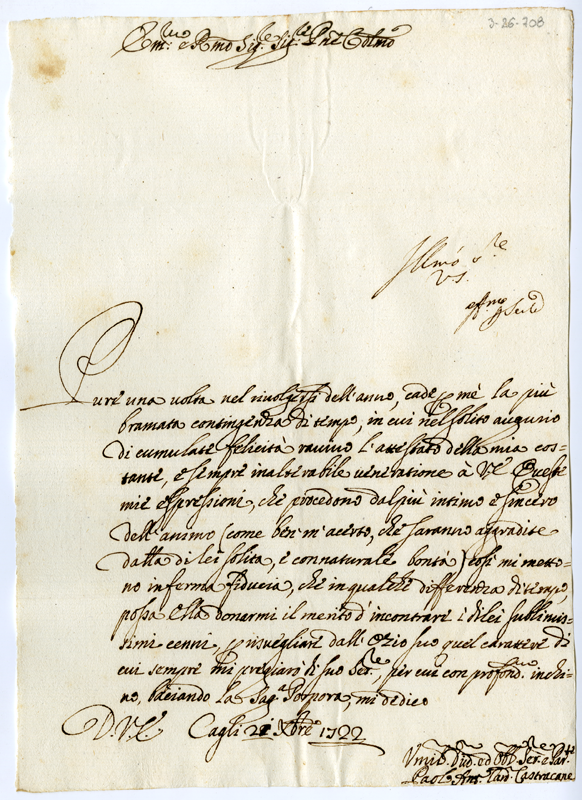 3-26-708
Em.mo e Rmo Sig.re Sig.re Prne Colmo
Illmo
VS.
aff.mo
Pure una volta nel rivolgersi dell'anno, cade p me la più
bramata contingenza di tempo, in cui nel solito augurio
di cumulate felicità ravivo l'attestato della mia cos-
tante, e sempre inalterabile veneratione à VE Queste
mie espressioni, che procedono dal più intimo e sincero
dell'animo (come ben m'acerto, che saranno aggradite
dalla di lei solita, e connaturale bontà) così mi metto-
no in ferma fiducia, che in qualche differenza di tempo,
possa Ella donarmi il merito d'incontrare i di lei sublimis-
simi cenni, p risvegliare dall'Ozio suo quel carattere di
cui sempre mi pregiarò di suo Ser.re, per cui con profond.mo inchi-
no, baciando la Sag.a Porpora, mi dedico
D. V. E. Cagli 21 Xbre 1722
Umil.o Div.o ed Obb.o Ser.re e Par.te
Paol. Ant. Castracane